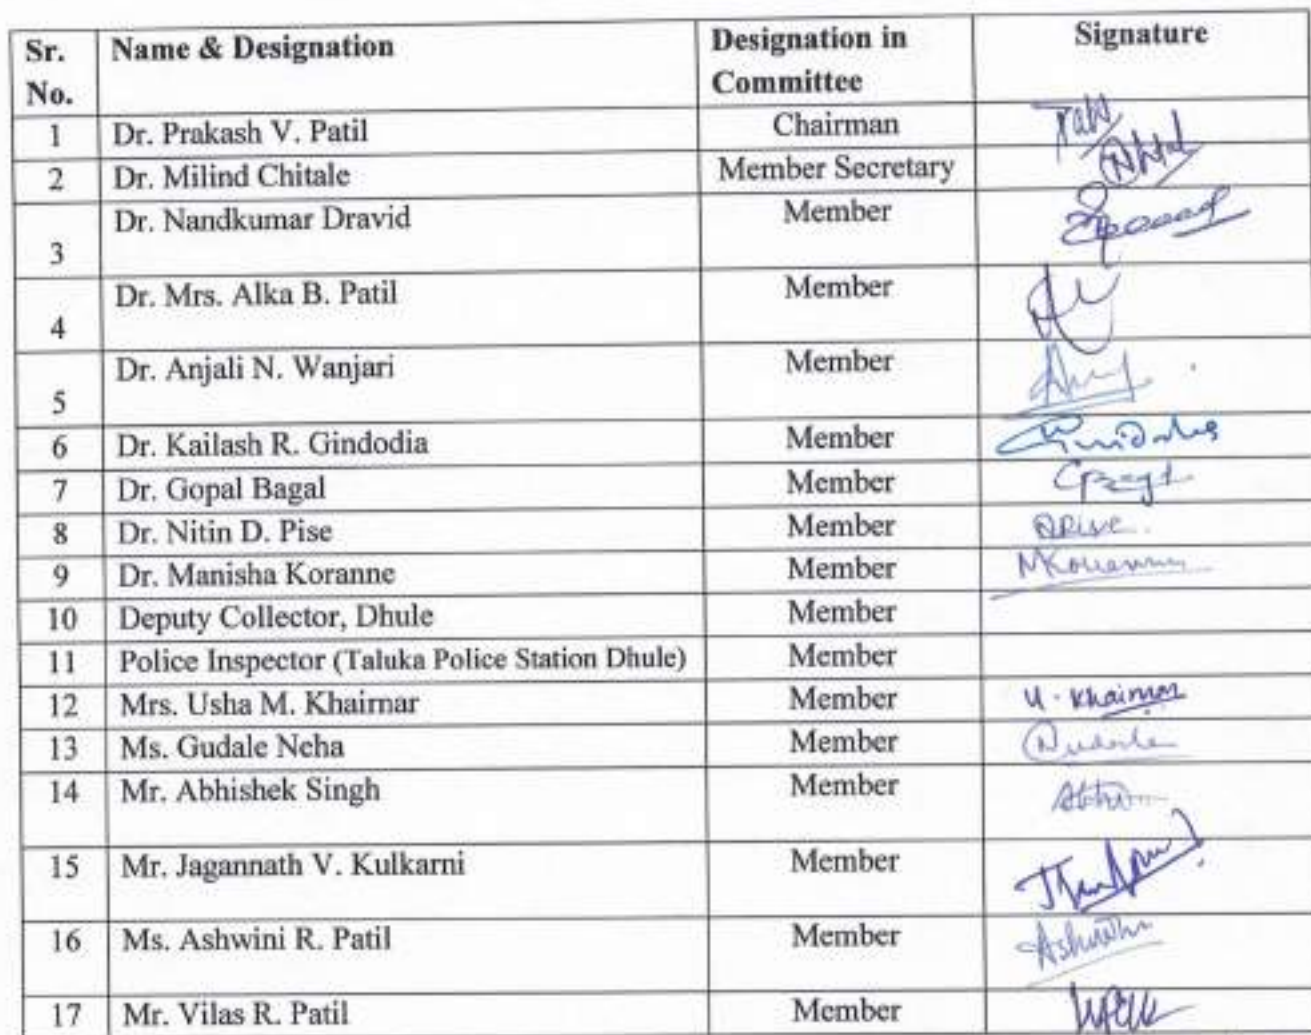 Sr. No. Name & Designation Designation in Committee Signature
1 Dr. Prakash V. Patil Chairman
2 Dr. Milind Chitale Member Secretary
3 Dr. Nandkumar Dravid Member
4 Dr. Mrs. Alka B. Patil Member
5 Dr. Anjali N. Wanjari Member
6 Dr. Kailash R. Gindodia Member
7 Dr. Gopal Bagal Member
8 Dr. Nitin D. Pise Member
9 Dr. Manisha Koranne Member
10 Deputy Collector, Dhule Member
11 Police Inspector (Taluka Police Station Dhule) Member
12 Mrs. Usha M. Khairnar Member U. Khairnar
13 Ms. Gudale Neha Member
14 Mr. Abhishek Singh Member
15 Mr. Jagannath V. Kulkarni Member
16 Ms. Ashwini R. Patil Member
17 Mr. Vilas R. Patil Member